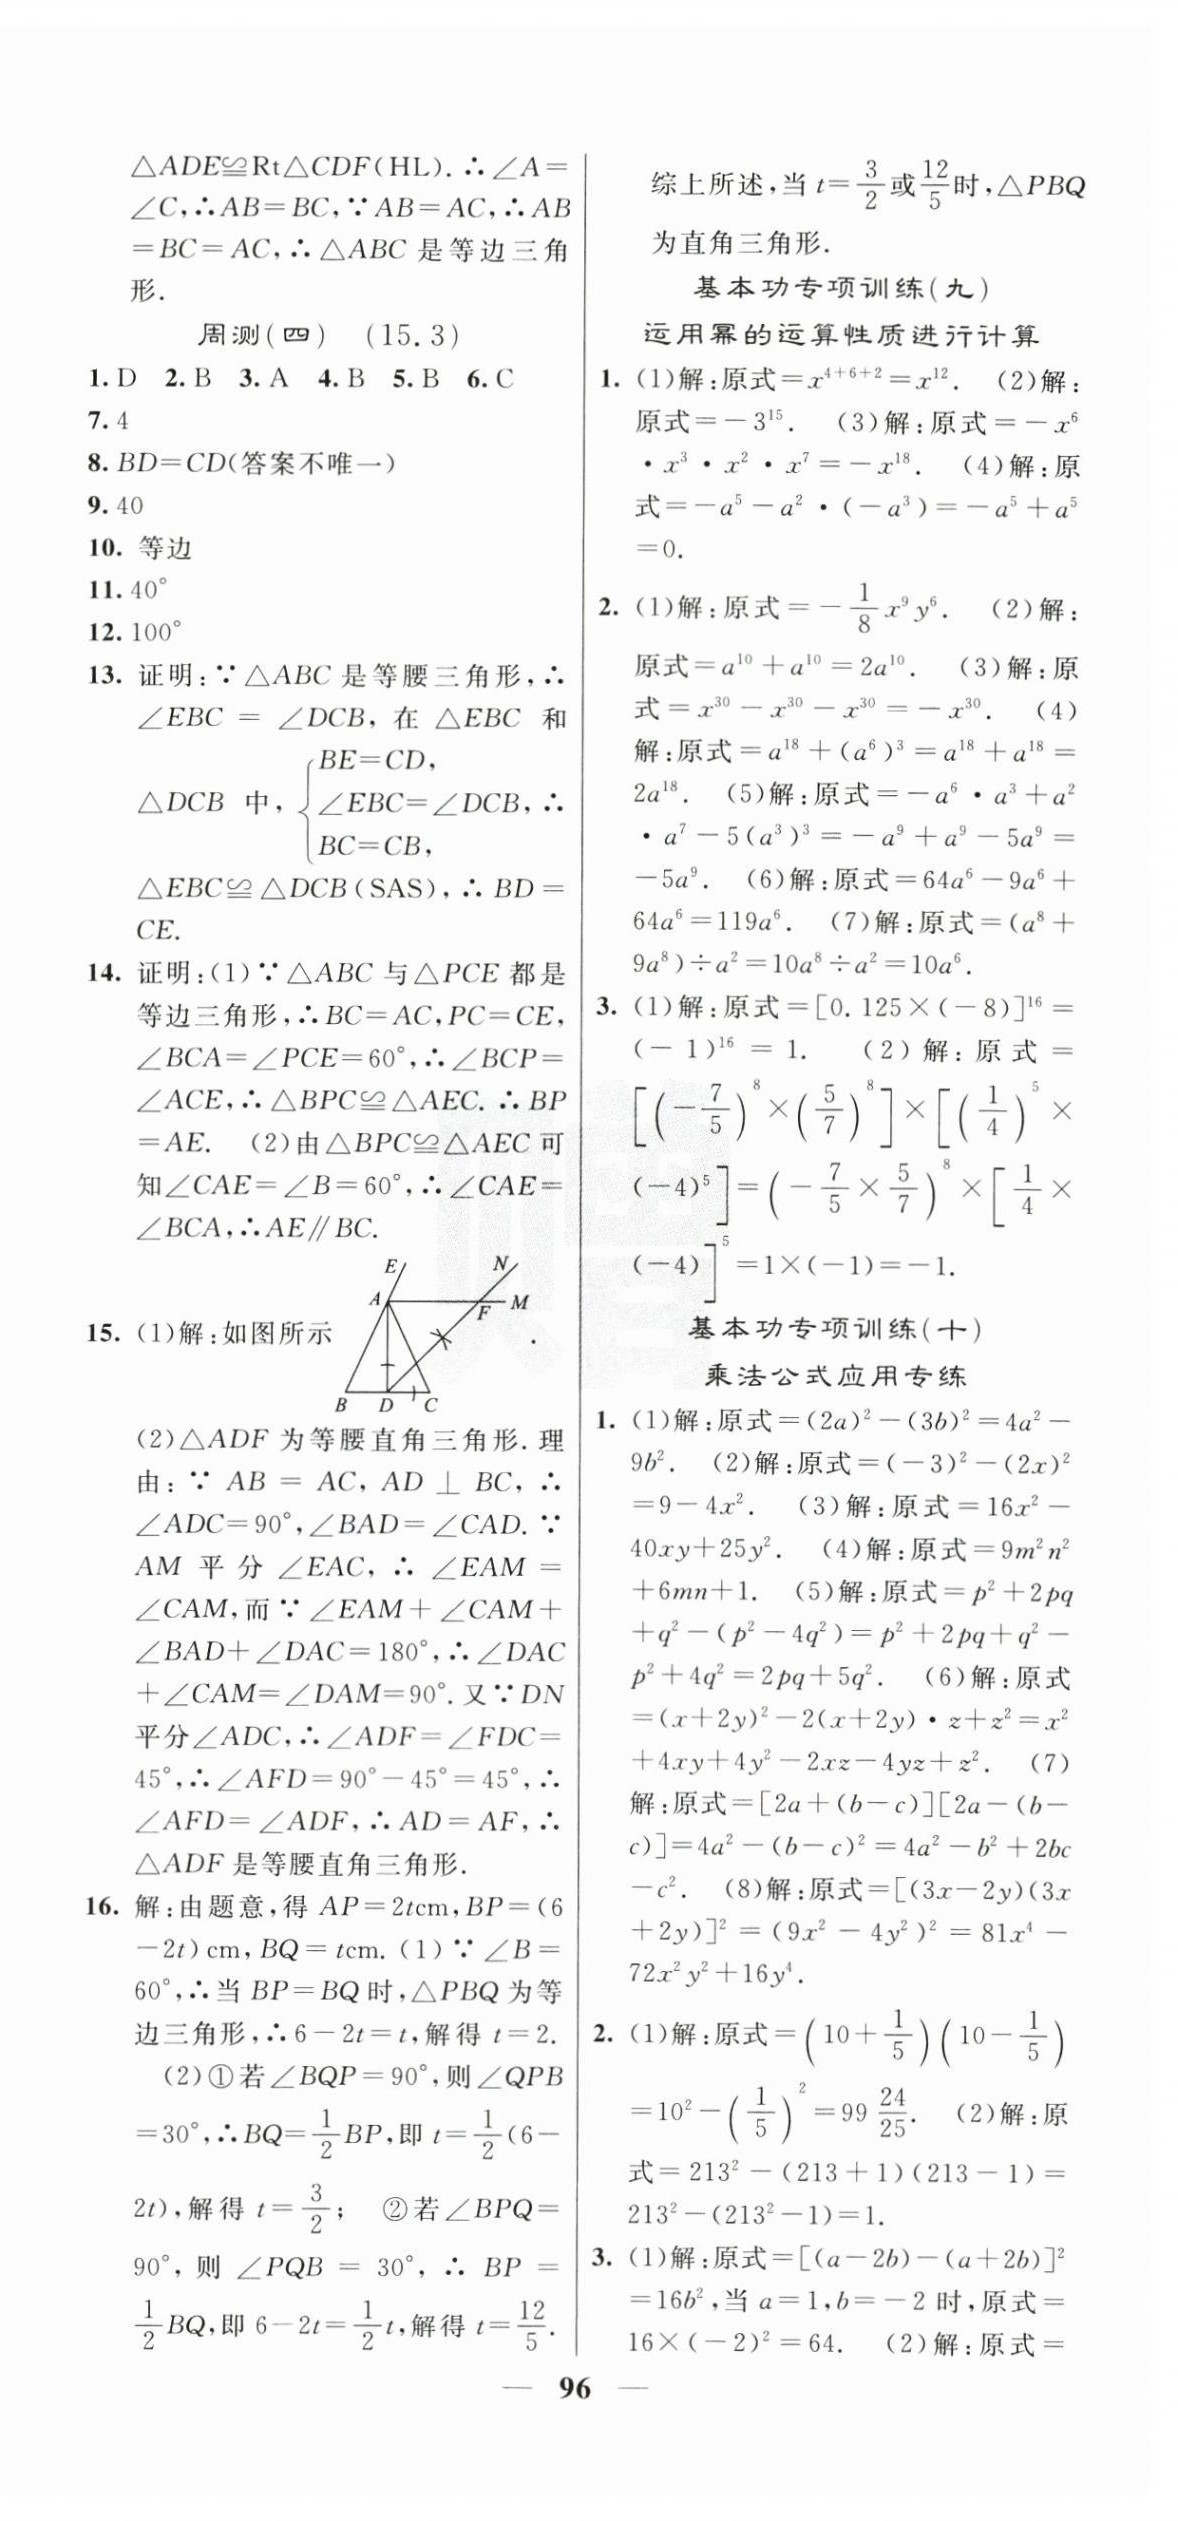 △ADE≌Rt△CDF(HL).∴∠A=
∠C,∴AB=BC,∵AB=AC,∴AB
=BC=AC,∴△ABC是等边三角
形.
周测(四) (15.3)
1.D 2.B 3.A 4.B 5.B 6.C
7.4
8.BD=CD(答案不唯一)
9.40
10.等边
11.40°
12.100°
13.证明:∵△ABC是等腰三角形,∴
∠EBC=∠DCB,在△EBC和
△DCB中,{BE=CD,
∠EBC=∠DCB,∴
BC=CB,
△EBC≌△DCB(SAS),∴BD=
CE.
14.证明:(1)∵△ABC与△PCE都是
等边三角形,∴BC=AC,PC=CE,
∠BCA=∠PCE=60°,∴∠BCP=
∠ACE,∴△BPC≌△AEC.∴BP
=AE. (2)由△BPC≌△AEC可
知∠CAE=∠B=60°,∴∠CAE=
∠BCA,∴AE∥BC.
E N
A F M
15.(1)解:如图所示 .
B D C
(2)△ADF为等腰直角三角形.理
由:∵AB=AC,AD⊥BC,∴
∠ADC=90°,∠BAD=∠CAD.∵
AM平分∠EAC,∴∠EAM=
∠CAM,而∵∠EAM+∠CAM+
∠BAD+∠DAC=180°,∴∠DAC
+∠CAM=∠DAM=90°.又∵DN
平分∠ADC,∴∠ADF=∠FDC=
45°,∴∠AFD=90°-45°=45°,∴
∠AFD=∠ADF,∴AD=AF,∴
△ADF是等腰直角三角形.
16.解:由题意,得AP=2tcm,BP=(6
-2t)cm,BQ=tcm.(1)∵∠B=
60°,∴当BP=BQ时,△PBQ为等
边三角形,∴6-2t=t,解得t=2.
(2)①若∠BQP=90°,则∠QPB
=30°,∴BQ=1/2BP,即t=1/2(6-
2t),解得t=3/2; ②若∠BPQ=
90°,则∠PQB=30°,∴BP=
1/2BQ,即6-2t=1/2t,解得t=12/5.
综上所述,当t=3/2或12/5时,△PBQ
为直角三角形.
基本功专项训练(九)
运用幂的运算性质进行计算
1.(1)解:原式=x⁴⁺⁶⁺²=x¹². (2)解:
原式=-3¹⁵. (3)解:原式=-x⁶
·x³·x²·x⁷=-x¹⁸. (4)解:原
式=-a⁵-a²·(-a³)=-a⁵+a⁵
=0.
2.(1)解:原式=-1/8x⁹y⁶. (2)解:
原式=a¹⁰+a¹⁰=2a¹⁰. (3)解:原
式=x³⁰-x³⁰-x³⁰=-x³⁰. (4)
解:原式=a¹⁸+(a⁶)³=a¹⁸+a¹⁸=
2a¹⁸. (5)解:原式=-a⁶·a³+a²
·a⁷-5(a³)³=-a⁹+a⁹-5a⁹=
-5a⁹. (6)解:原式=64a⁶-9a⁶+
64a⁶=119a⁶. (7)解:原式=(a⁸+
9a⁸)÷a²=10a⁸÷a²=10a⁶.
3.(1)解:原式=[0.125×(-8)]¹⁶=
(-1)¹⁶=1. (2)解:原式=
[(-7/5)⁸×(5/7)⁸]×[(1/4)⁵×
(-4)⁵]=(-7/5×5/7)⁸×[1/4×
(-4)]⁵=1×(-1)=-1.
基本功专项训练(十)
乘法公式应用专练
1.(1)解:原式=(2a)²-(3b)²=4a²-
9b². (2)解:原式=(-3)²-(2x)²
=9-4x². (3)解:原式=16x²-
40xy+25y². (4)解:原式=9m²n²
+6mn+1. (5)解:原式=p²+2pq
+q²-(p²-4q²)=p²+2pq+q²-
p²+4q²=2pq+5q². (6)解:原式
=(x+2y)²-2(x+2y)·z+z²=x²
+4xy+4y²-2xz-4yz+z². (7)
解:原式=[2a+(b-c)][2a-(b-
c)]=4a²-(b-c)²=4a²-b²+2bc
-c². (8)解:原式=[(3x-2y)(3x
+2y)]²=(9x²-4y²)²=81x⁴-
72x²y²+16y⁴.
2.(1)解:原式=(10+1/5)(10-1/5)
=10²-(1/5)²=99 24/25. (2)解:原
式=213²-(213+1)(213-1)=
213²-(213²-1)=1.
3.(1)解:原式=[(a-2b)-(a+2b)]²
=16b²,当a=1,b=-2时,原式=
16×(-2)²=64. (2)解:原式=
— 96 —